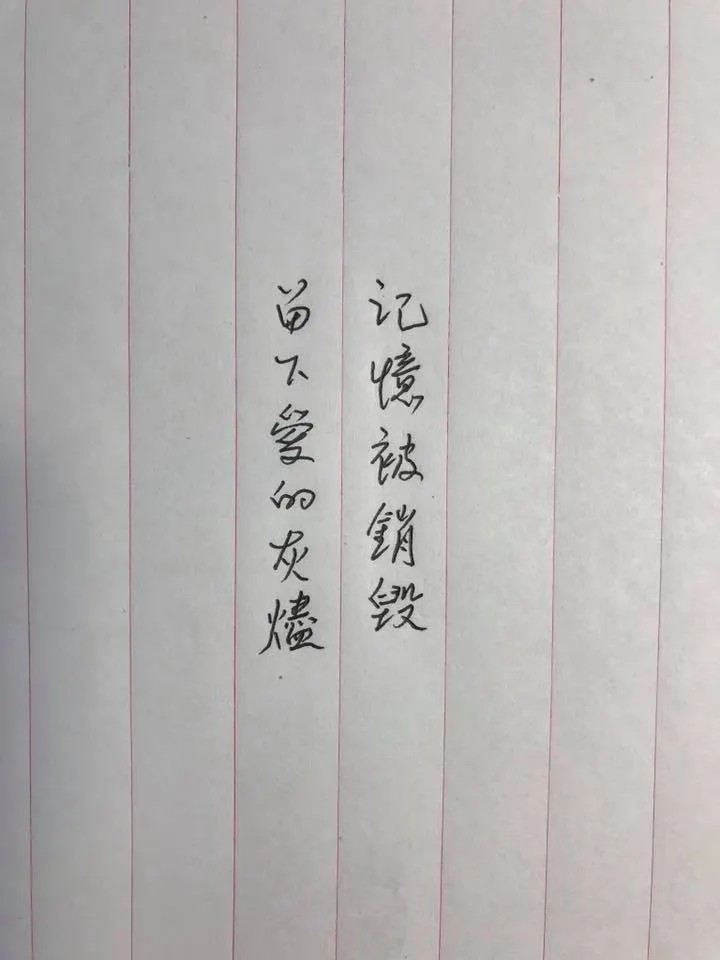 记憶被銷毀
留下愛的灰燼